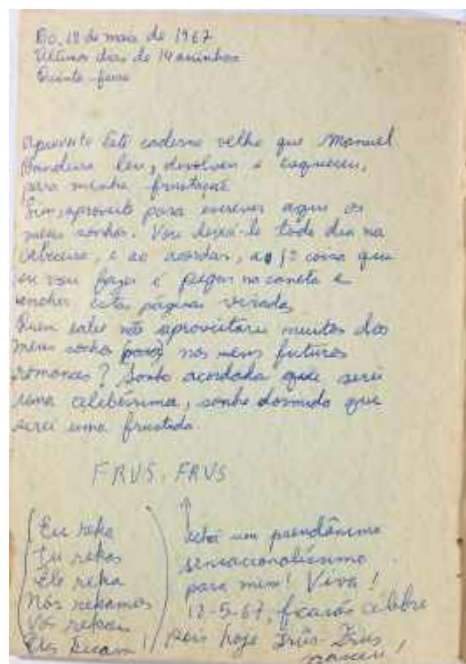 Rio, 18 de maio de 1967
Últimos dias de 14 aninhos
Quinta-feira
Aproveito este caderno velho que Manuel
Bandeira leu, devolveu e esqueceu,
para minha frustação
Sim, aproveito para escrever aqui os
meus sonhos. Vou deixá-lo todo dia na
cabeceira, e ao acordar, a 1ª coisa que
eu vou fazer é pegar na caneta e
encher estas páginas viradas
Quem sabe não aproveitarei muitos dos
meus sonhos nos meus futuros
romances? Sonho acordada que serei
uma celebérrima, sonho dormindo que
serei uma frustada.
FRVS. FRVS
(Eu reka
Tu rekas
Ele reka
Nós rekamos
Vós rekais
Eles)
será um pseudônimo
sensacionalíssimo
para mim! Viva!
18-5-67, ficarás célebre
pois hoje
nasceu!